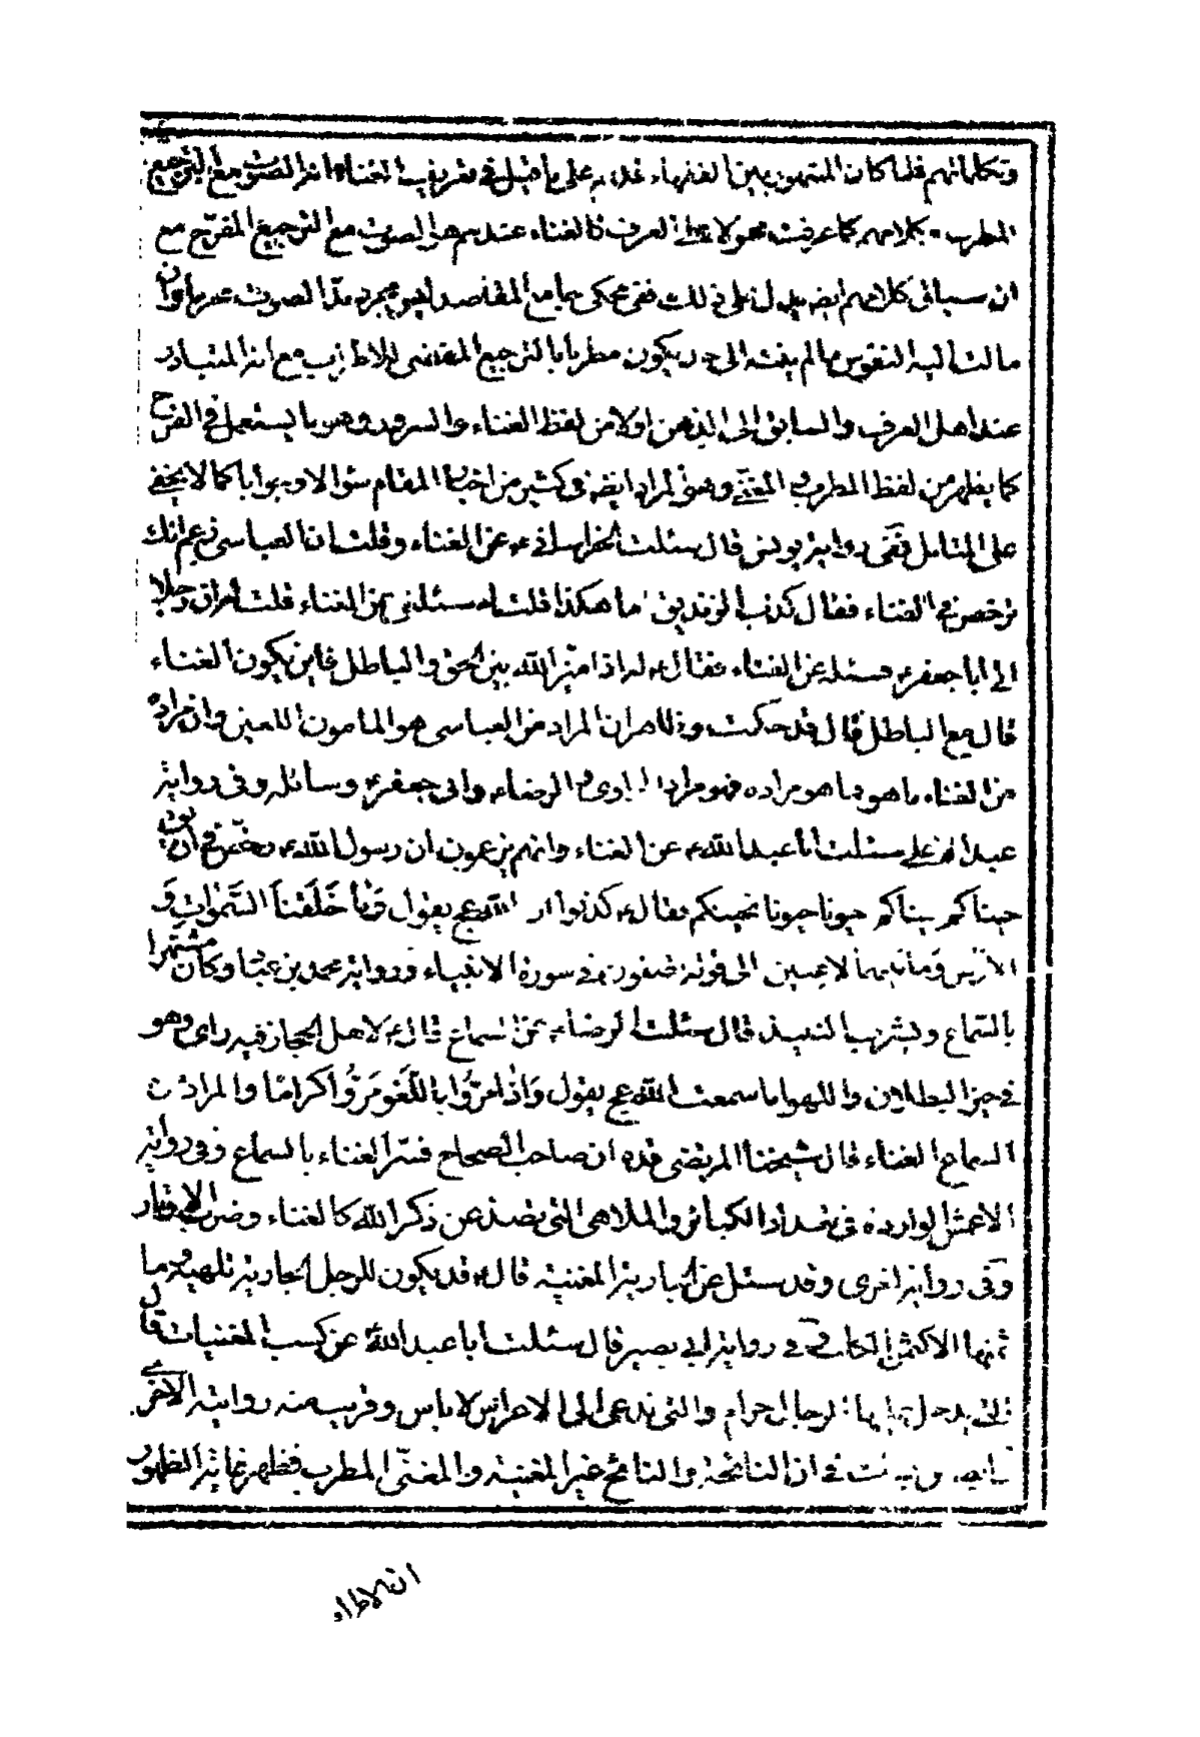 وتكلماتهم فلما كان المشهور بين الفقهاء على ما قيل في تعريف الغناء انه الصوت مع الترجيع
المطرب كلامهم كما عرفت محمولا على العرف فالغناء عندهم هو الصوت مع الترجيع المفرح مع
ان سياق كلامهم ايضا يدل على ذلك ففي محكى جامع المقاصد ليس مجرد مد الصوت محرما وان
مالت اليه النفوس ما لم ينته الى حد يكون مطربا بالترجيع المقتضى للاطراب مع انه المتبادر
عند اهل العرف والسابق الى الذهن اولا من لفظ الغناء والسرود وهو ما يستعمل في الفرح
كما يظهر من لفظ المطرب والمغني وهو المراد ايضا في كثير من اخبار المقام سؤالا وجوابا كما لا يخفى
على المتامل ففى رواية يونس قال سئلت الخراسانى ء عن الغناء وقلت ان العباسى زعم انك
ترخص في الغناء فقال كذب الزنديق ما هكذا قلت له سئلنى عن الغناء قلت ان رجلا
اتى ابا جعفر ء فسئله عن الغناء فقال ء له اذا ميز الله بين الحق والباطل فاين يكون الغناء
قال مع الباطل قال قد حكمت وظاهر ان المراد من العباسى هو المامون اللعين وان مراده
من الغناء ما هو وما هو مراده فهو مراد الراوى والرضاء وابى جعفر ء وسائله وفى رواية
عبد الاعلى سئلت ابا عبد الله ء عن الغناء وانهم يزعمون ان رسول الله ء رخص في ان يقول
جيناكم جيناكم حيونا حيونا نحييكم فقال ء كذبوا ان الله عج يقول وَمَا خَلَقْنَا السَّمٰوَاتِ وَ
الارض وَمَا بينهما لاعبين الى قوله تصفون في سورة الانبياء ورواية محمد بن عباد وكان مشتهرا
بالسماع وبشرب النبيذ قال سئلت الرضاء عن السماع قال ء لاهل الحجاز فيه راى وهو
في حيز البطلان واللهو اما سمعت الله عج يقول وَاِذٰا مَرُّوا بِاللَّغْوِ مَرُّوا كِرٰامًا والمراد من
السماع الغناء قال شيخنا المرتضى قده ان صاحب الصحاح فسر الغناء بالسماع وفى رواية
الاعمش الواردة فى تعداد الكبائر والملاهى التى تصد عن ذكر الله كالغناء وضرب الاوتار
وفى رواية اخرى وقد سئل عن الجارية المغنية قال ء قد يكون للرجل الجارية تلهيه وما
ثمنها الا كثمن الكلب وفى رواية ابى بصير قال سئلت ابا عبد الله ء عن كسب المغنيات قال
التى يدخل عليها الرجال حرام والتى تدعى الى الاعراس لا باس وقريب منه روايته الاخرى
في ان النائحة والنائح غير المغنية والمغنّى المطرب فظهر غاية الظهور
ان الاطراء